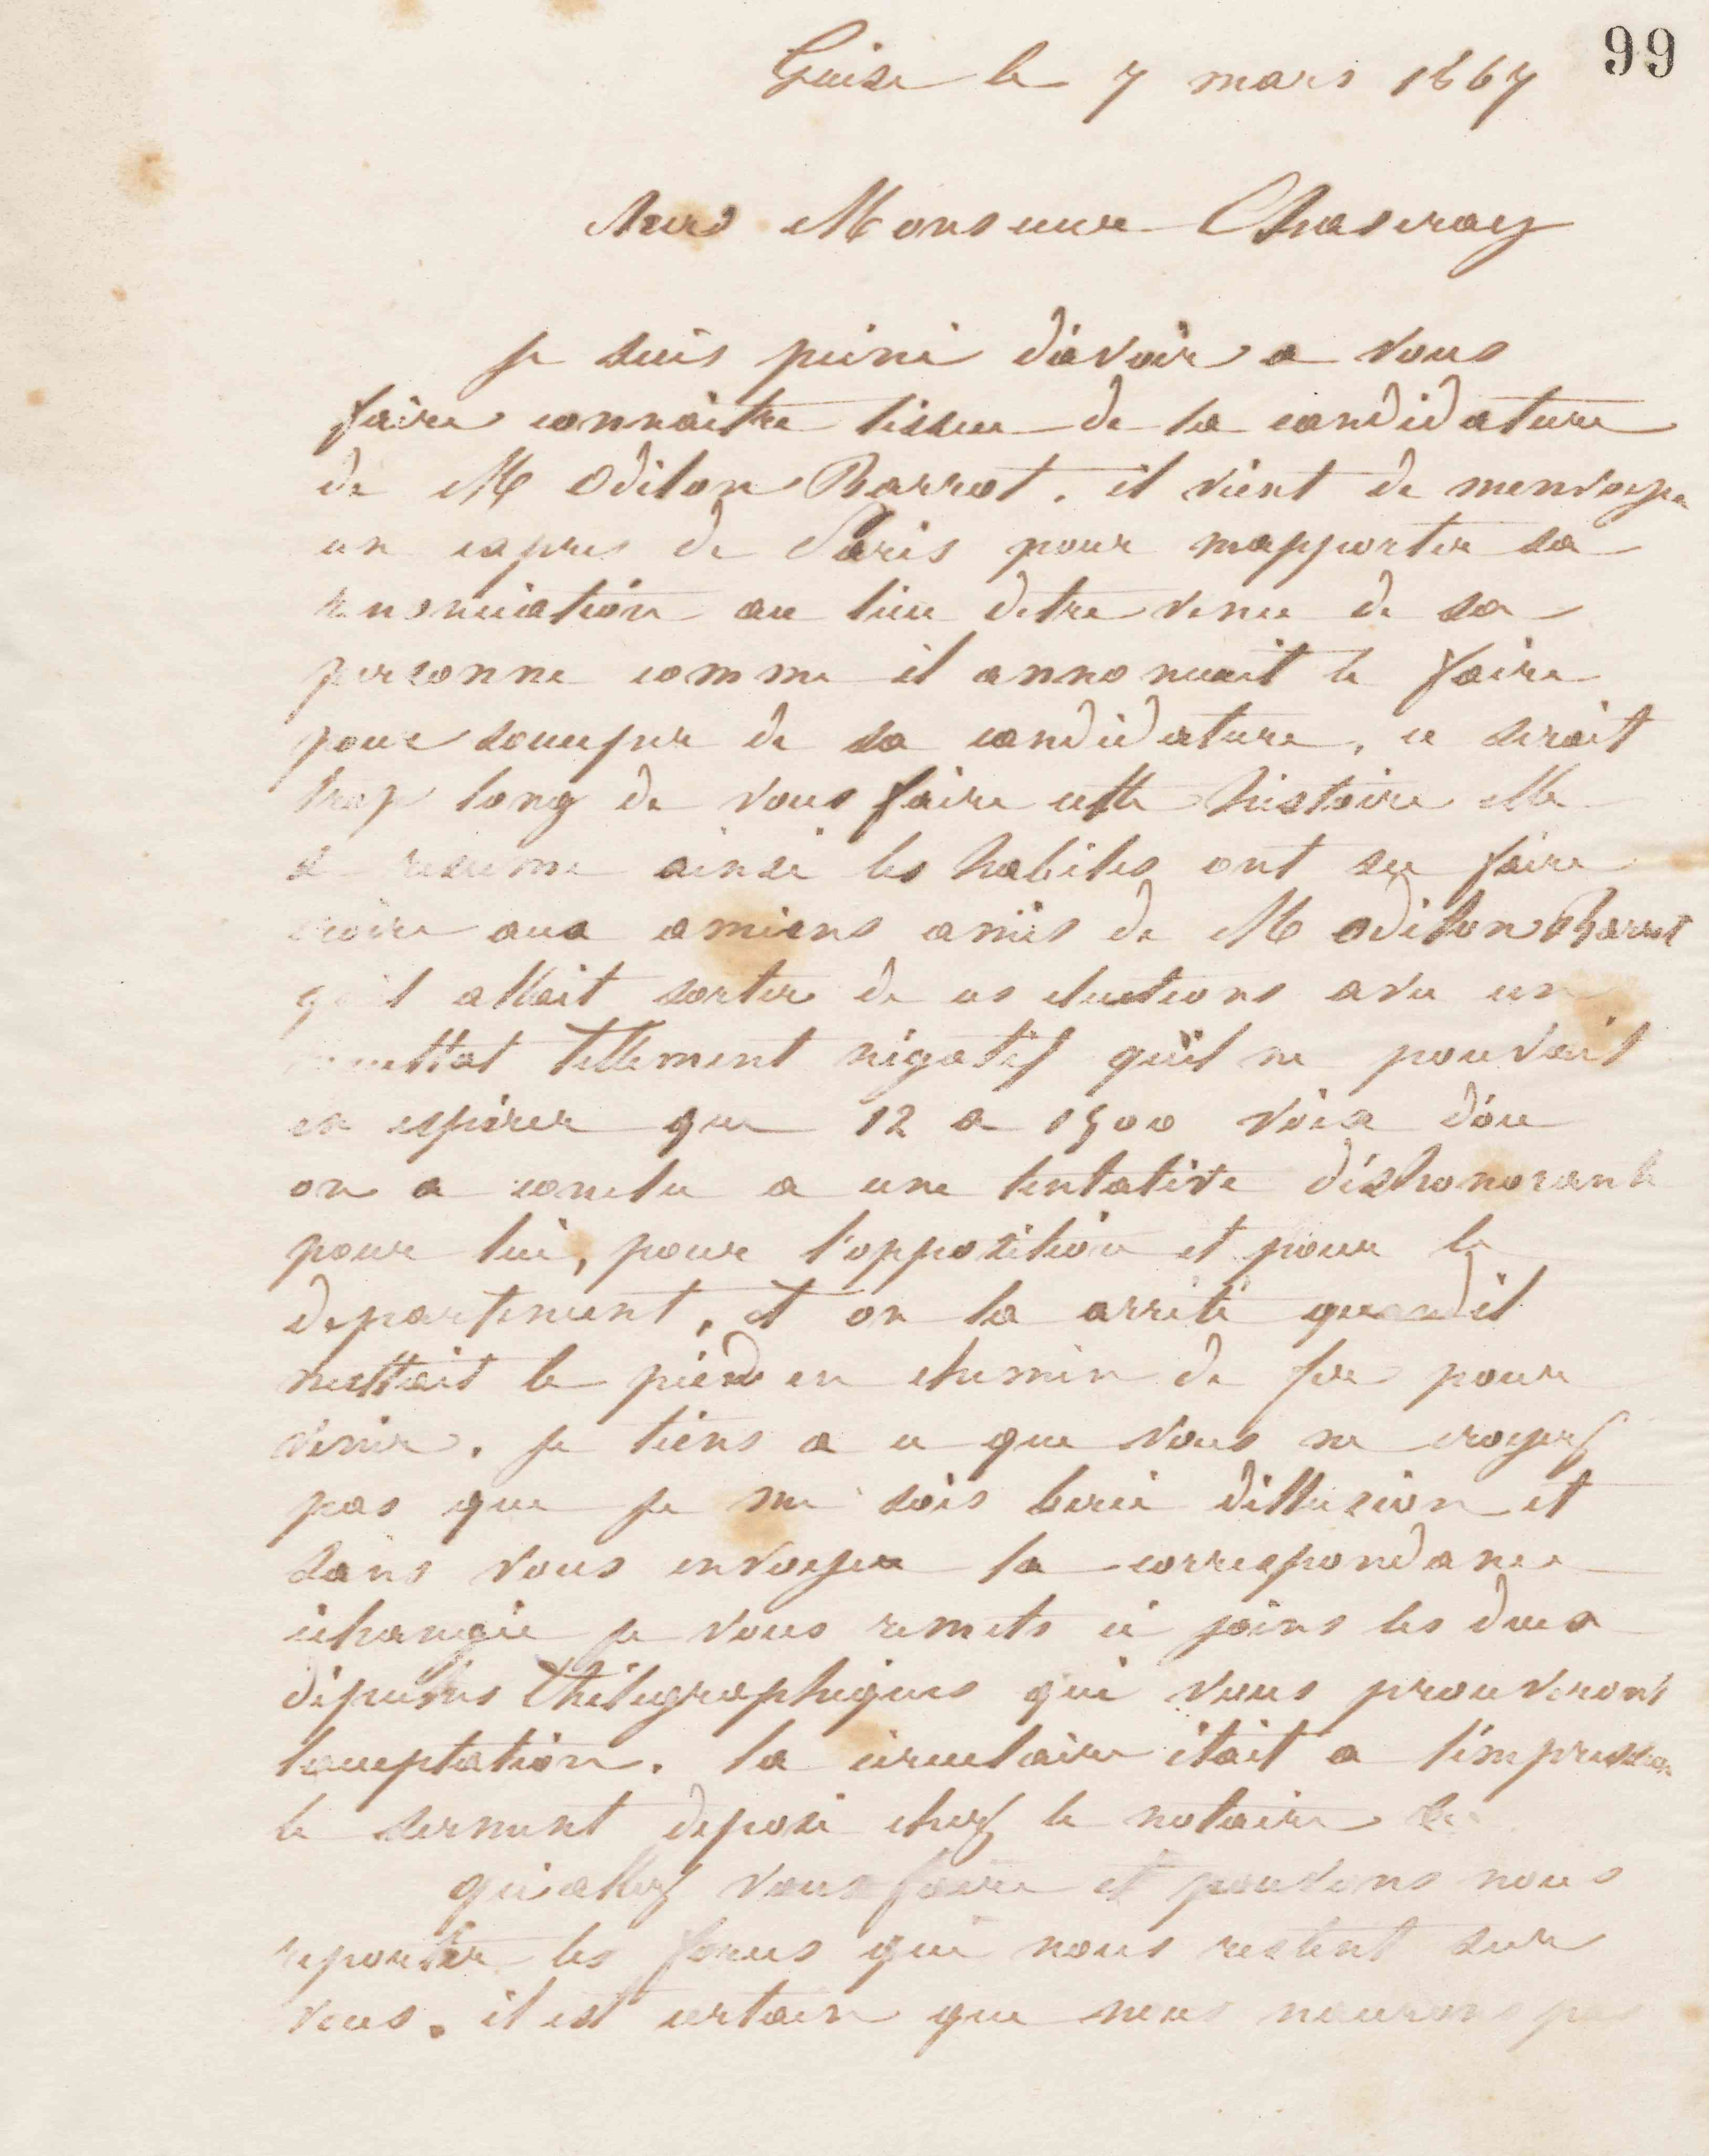 99
Guise le 7 mars 1867
cher Monsieur Chaseray
Je suis peiné d'avoir a vous
faire connaitre lissue de la candidature
de M Odilon Barrot. il vient de menvoyer
un expres de Paris pour mapporter sa
renonciation au lieu detre venu de sa
personne comme il annoncait le faire
pour soccuper de sa candidature. ce serait
trop long de vous faire cette histoire elle
se resume ainsi les habiles ont su faire
croire aux amiens amis de M Odilon Barrot
quil allait sortir de ces elections avec un
resultat tellement négatif qu'il ne pouvait
en espérer que 12 a 1500 voix d'ou
on a conclu a une tentative déshonorante
pour lui, pour l'opposition et pour le
departement, et on la arrêté quand il
mettait le pied en chemin de fer pour
venir. Je tiens a ce que vous ne croyez
pas que je me sois bercé dillusion et
sans vous envoyer la correspondance
échangée je vous remets ci joins les deux
dépeches thélegraphiques qui vous prouveront
lacceptation. la circulaire était a l'impression
le serment deposé chez le notaire
qu'allez vous faire et pouvons nous
reporter les forces qui nous restent sur
vous. il est certain que nous naurons pas